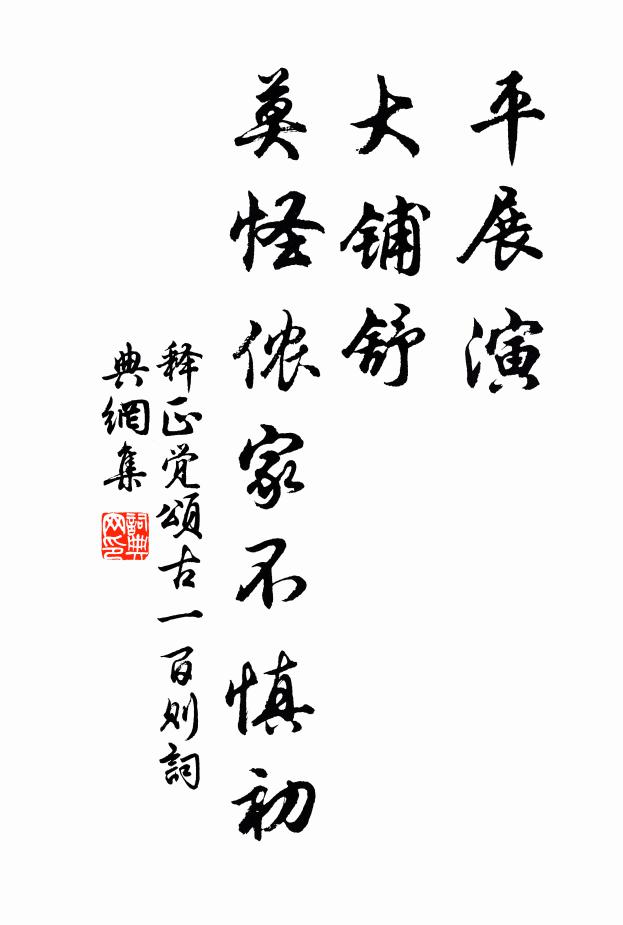 平展演
大铺舒
莫怪侬家不慎初
释正觉頌古一百则詞
典網集
詞典
网印